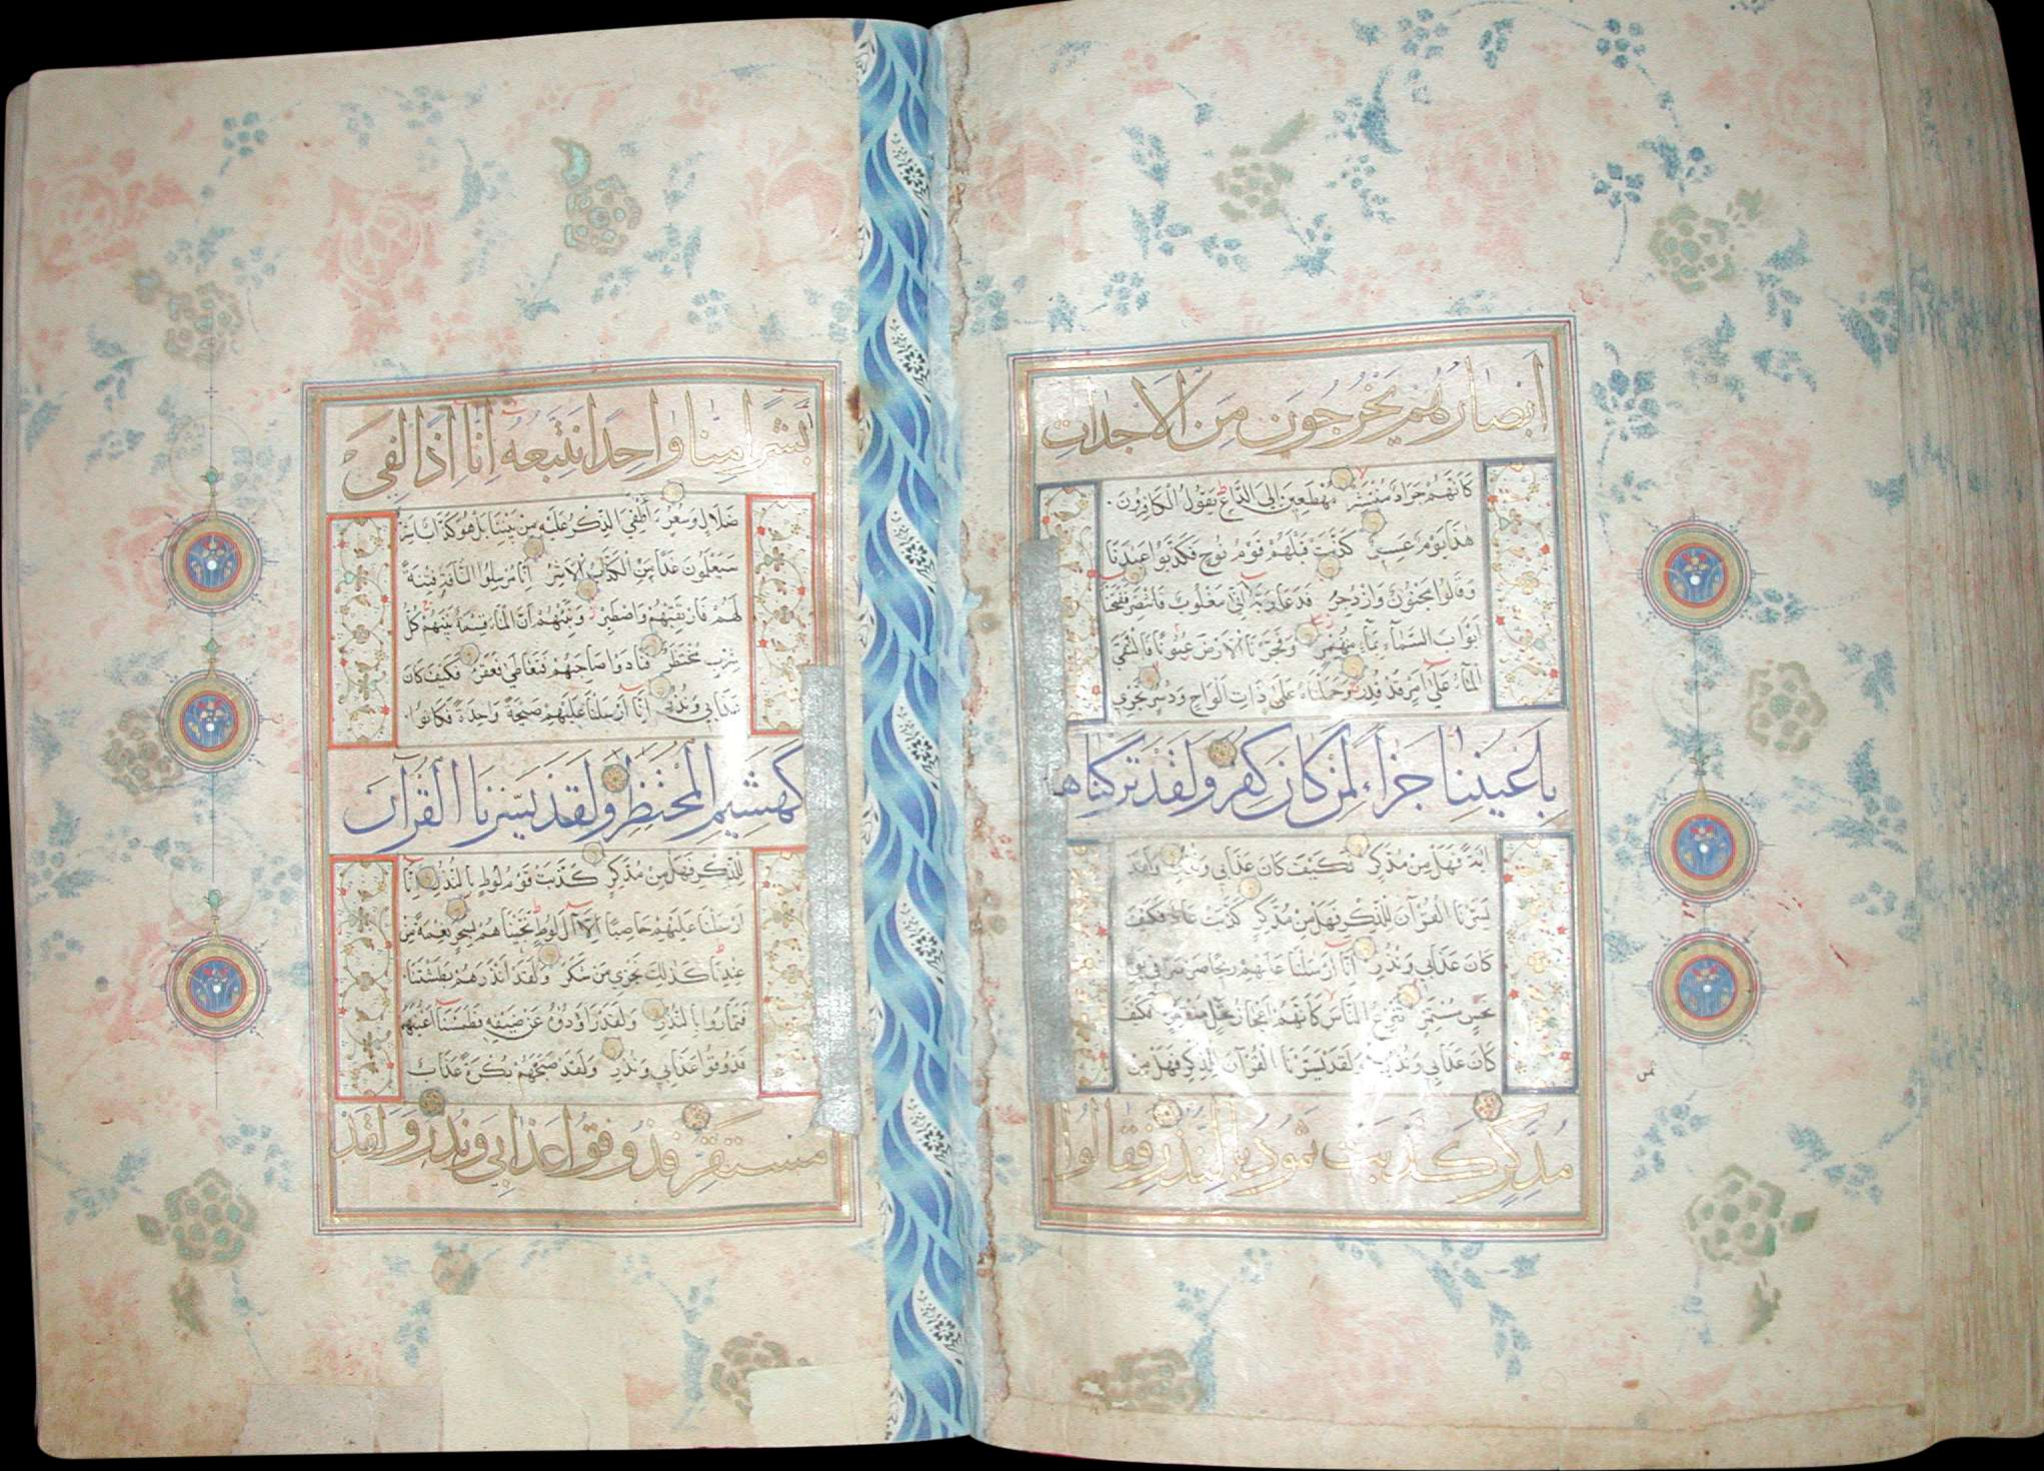 ابصارهم يخرجون من الاجداث
كانهم جراد منتشر مهطعين الى الداع يقول الكافرون
هذا يوم عسر كذبت قبلهم قوم نوح فكذبوا عبدنا
وقالوا مجنون وازدجر فدعا ربه اني مغلوب فانتصر ففتحنا
ابواب السماء بماء منهمر وفجرنا الارض عيونا فالتقى
الماء على امر قد قدر وحملناه على ذات الواح ودسر تجري
باعيننا جزاء لمن كان كفر ولقد تركناها
اية فهل من مدكر فكيف كان عذابي ونذر ولقد
يسرنا القرآن للذكر فهل من مدكر كذبت عاد فكيف
كان عذابي ونذر انا ارسلنا عليهم ريحا صرصرا في يوم
نحس مستمر تنزع الناس كانهم اعجاز نخل منقعر فكيف
كان عذابي ونذر ولقد يسرنا القرآن للذكر فهل من
مدكر كذبت ثمود بالنذر فقالوا
ابشرا منا واحدا نتبعه انا اذا لفي
ضلال وسعر أالقي الذكر عليه من بيننا بل هو كذاب اشر
سيعلمون غدا من الكذاب الاشر انا مرسلوا الناقة فتنة
لهم فارتقبهم واصطبر ونبئهم ان الماء قسمة بينهم كل
شرب محتضر فنادوا صاحبهم فتعاطى فعقر فكيف كان
عذابي ونذر انا ارسلنا عليهم صيحة واحدة فكانوا
كهشيم المحتظر ولقد يسرنا القرآن
للذكر فهل من مدكر كذبت قوم لوط بالنذر انا
ارسلنا عليهم حاصبا الا آل لوط نجيناهم بسحر نعمة من
عندنا كذلك نجزي من شكر ولقد انذرهم بطشتنا
فتماروا بالنذر ولقد راودوه عن ضيفه فطمسنا اعينهم
فذوقوا عذابي ونذر ولقد صبحهم بكرة عذاب
مستقر فذوقوا عذابي ونذر ولقد